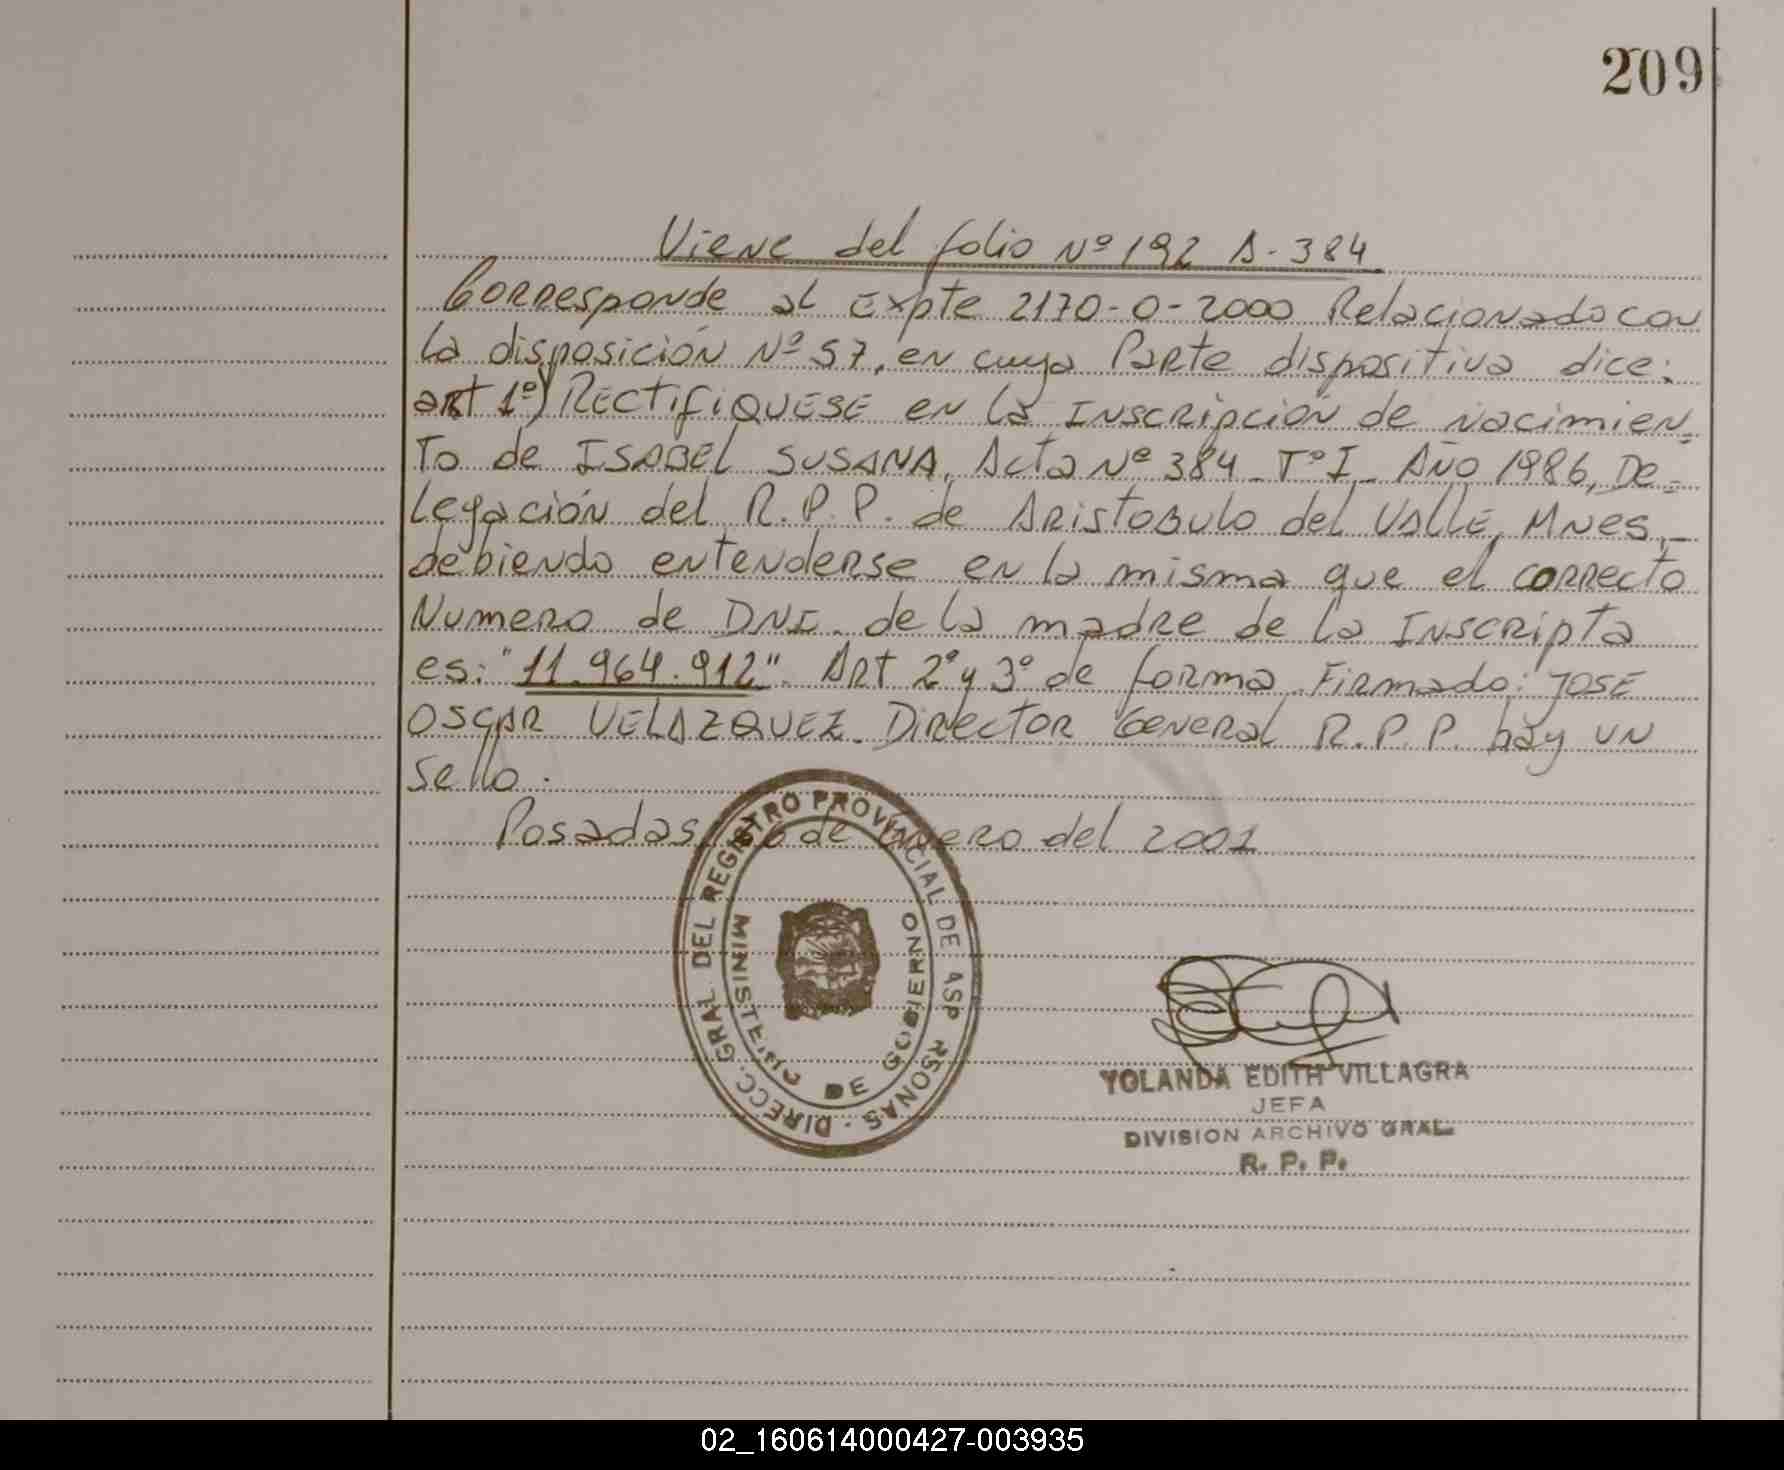 209
Viene del folio Nº 192 A-384.
Corresponde al Expte 2170-0-2000 Relacionado con
la disposición Nº 57, en cuya Parte dispositiva dice:
art 1º) RECTIFIQUESE en la Inscripción de nacimien=
To de ISABEL SUSANA, Acta Nº 384 - TºI - Año 1986, De=
legación del R.P.P. de Aristobulo del Valle, Mnes,-
debiendo entenderse en la misma que el correcto
Numero de DNI. de la madre de la Inscripta
es: "11.964.912". Art 2º y 3º de forma. Firmado: JOSE
OSCAR VELAZQUEZ. Director General R.P.P. hay un
Sello.
Posadas, de Enero del 2001
DIRECC. GRAL. DEL REGISTRO PROVINCIAL DE
MINISTERIO DE GOBIERNO
YOLANDA EDITH VILLAGRA
JEFA
DIVISION ARCHIVO GRAL
R. P. P.
02_160614000427-003935